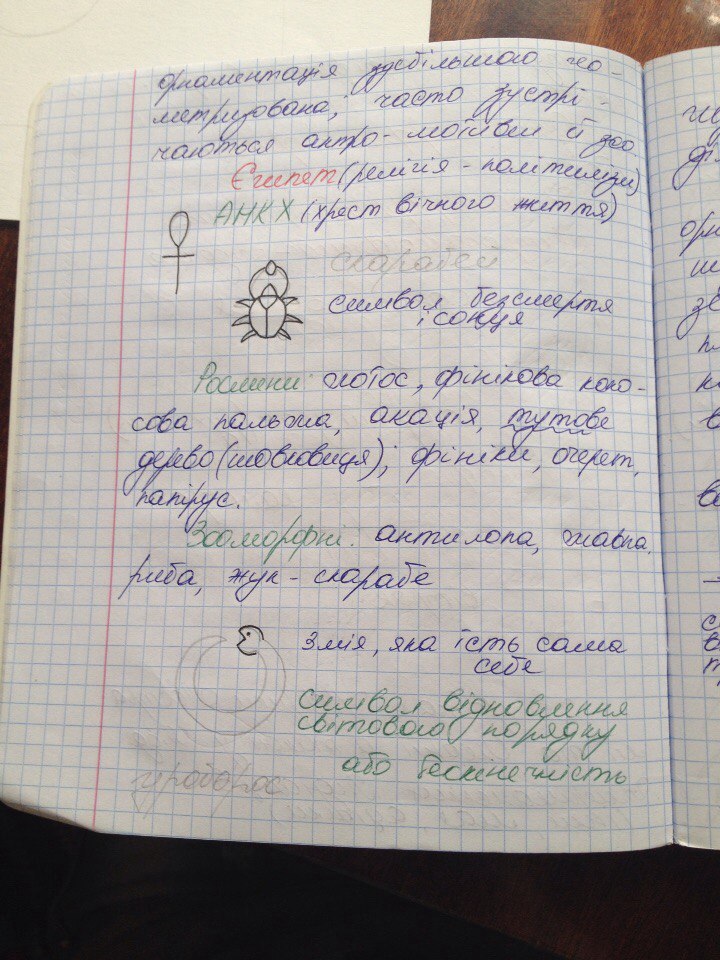 орнаментація здебільшого гео-
метризована; часто зустрі-
чаються антро-мотиви й зоо.
Єгипет (релігія - політеїзм)
АНКХ (хрест вічного життя)
скарабей
символ безсмертя
і сонця
Рослинні: лотос, фінікова коко-
сова пальма, акація, тутове
дерево (шовковиця); фініки, очерет,
папірус.
Зооморфні: антилопа, мавпа,
риба, жук - скарабе
Змія, яка їсть сама
себе
символ відновлення
світового порядку
або безкінечність
уроборос